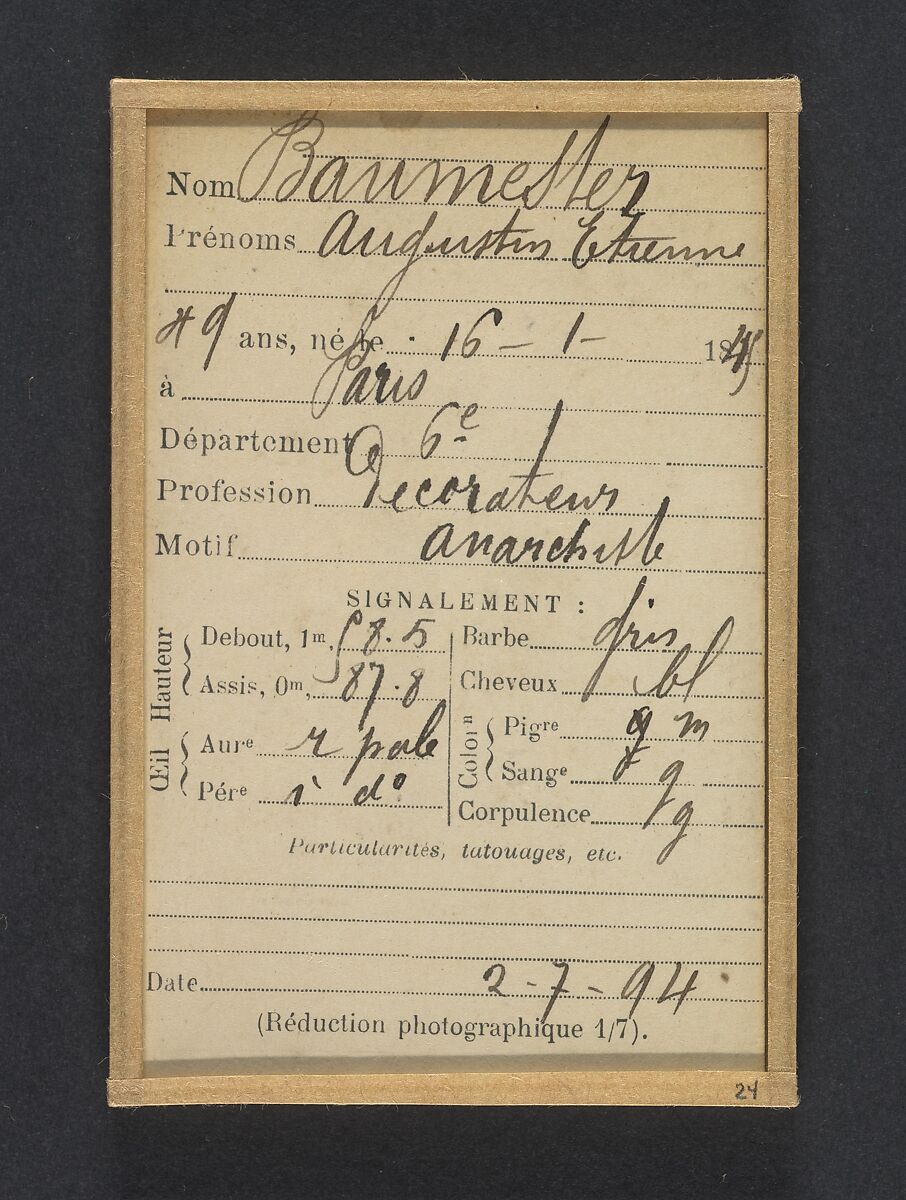 Nom Baumester
Prénoms Augustin Etienne
49 ans, né le 16 - 1 - 1845
à Paris
Département 6e
Profession Décorateur
Motif Anarchiste
SIGNALEMENT :
Hauteur
Debout, 1m, 8.5
Assis, 0m, 87.8
Œil
Aure r pale
Pére i do
Barbe gris
Cheveux bl
Colorn
Pigre g m
Sange g
Corpulence g
Particularités, tatouages, etc.
Date 2 - 7 - 94
(Réduction photographique 1/7).
24